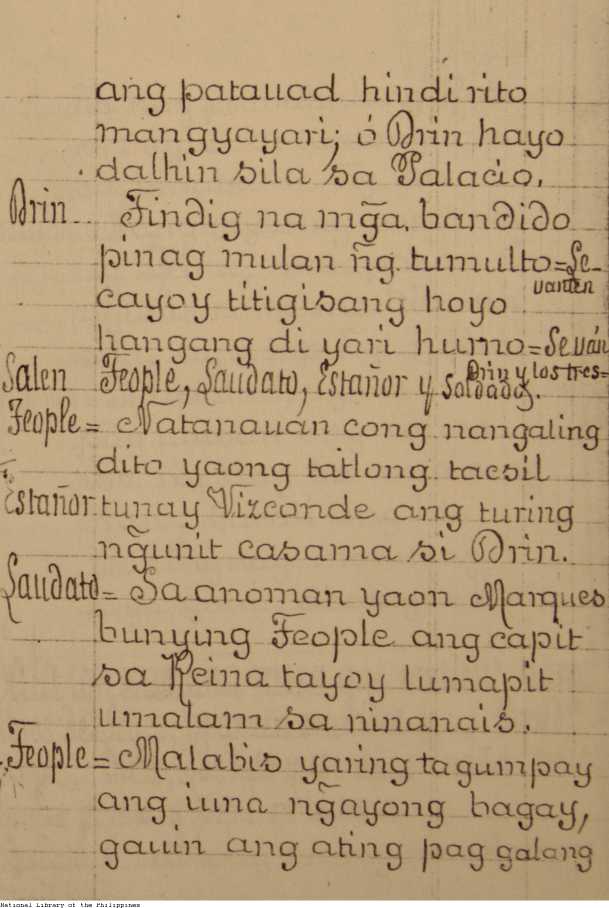 ang patauad hindi rito
mangyayari; ó Drin hayo
dalhin sila sa Palacio.
Drin.. Tindig na mg̃a. bandido
pinag mulan n͠g. tumulto=Se-
vanten
cayoy titigisang hoyo
hangang di yari humo=Se ván
Salen Teople, Laudato, Estañor y Soldados.
Drin y los tres=
Teople= Natanauan cong nangaling
dito yaong tatlong tacsil
Estañor. tunay Vizconde ang turing
ng̃unit casama si Drin.
Laudato= Sa anoman yaon Marques
bunying Teople ang capit
sa Reina tayoy lumapit
umalam sa ninanais.
Teople= Malabis yaring tagumpay
ang iuna ng̃ayong bagay,
gauin ang ating pag galang
National Library of the Philippines